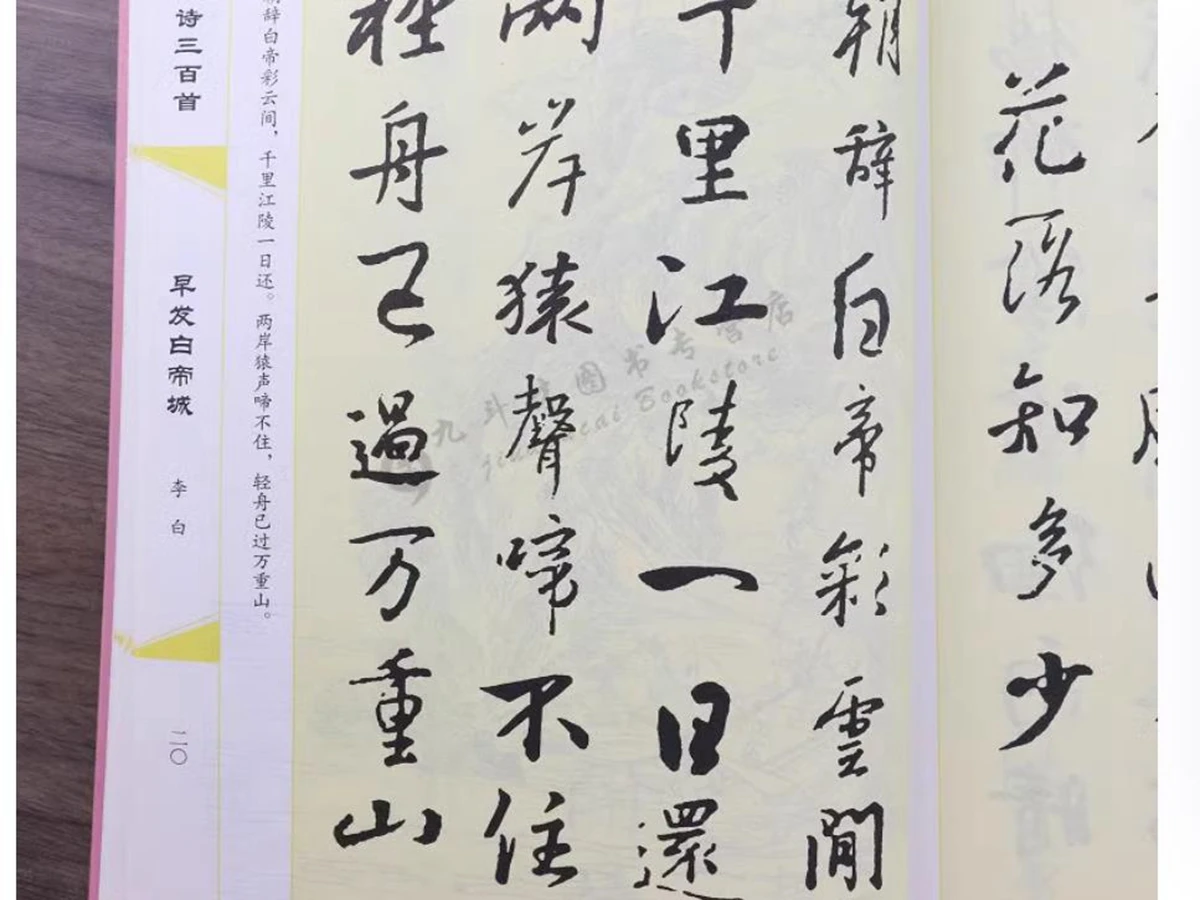 花落知多少
朝辞白帝彩雲間
千里江陵一日還
兩岸猿聲啼不住
輕舟已過万重山
朝辞白帝彩云间，千里江陵一日还。两岸猿声啼不住，轻舟已过万重山。
诗三百首
早发白帝城
李白
二〇